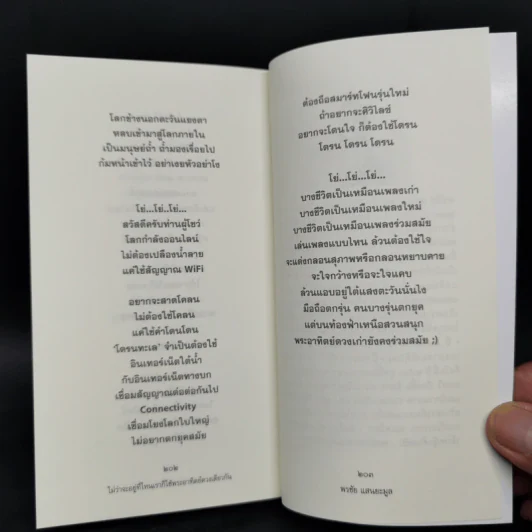 โลกข้างนอกตะวันแยงตา
หลบเข้ามาสู่โลกภายใน
เป็นมนุษย์ถ้ำ ถ้ำมองเรื่อยไป
ก้มหน้าเข้าไว้ อย่าเงยหัวอย่าโง
โย่...โย่...โย่...
สวัสดีครับท่านผู้โชว์
โลกกำลังออนไลน์
ไม่ต้องเปลืองน้ำลาย
แค่ใช้สัญญาณ WiFi
อยากจะสาดโคลน
ไม่ต้องใช้โคลน
แค่ใช้คำโดนโดน
'โดรนทะเล' จำเป็นต้องใช้
อินเทอร์เน็ตใต้น้ำ
กับอินเทอร์เน็ตทางบก
เชื่อมสัญญาณต่อต่อกันไป
Connectivity
เชื่อมโยงโลกใบใหญ่
ไม่อยากตกยุคสมัย
๒๐๒
ไม่ว่าจะอยู่ที่ไหนเราก็ใช้พระอาทิตย์ดวงเดียวกัน
ต้องถือสมาร์ทโฟนรุ่นใหม่
ถ้าอยากจะศิวิไลซ์
อยากจะโดนใจ ก็ต้องใช้โดรน
โดรน โดรน โดรน
โย่...โย่...โย่...
บางชีวิตเป็นเหมือนเพลงเก่า
บางชีวิตเป็นเหมือนเพลงใหม่
บางชีวิตเป็นเหมือนเพลงร่วมสมัย
เล่นเพลงแบบไหน ล้วนต้องใช้ใจ
จะแต่งกลอนสุภาพหรือกลอนหยาบคาย
จะใจกว้างหรือจะใจแคบ
ล้วนแอบอยู่ใต้แสงตะวันนั่นไง
มือถือตกรุ่น คนบางรุ่นตกยุค
แต่บนท้องฟ้าเหนือสวนสนุก
พระอาทิตย์ดวงเก่ายังคงร่วมสมัย ;)
๒๐๓
พรชัย แสนยะมูล